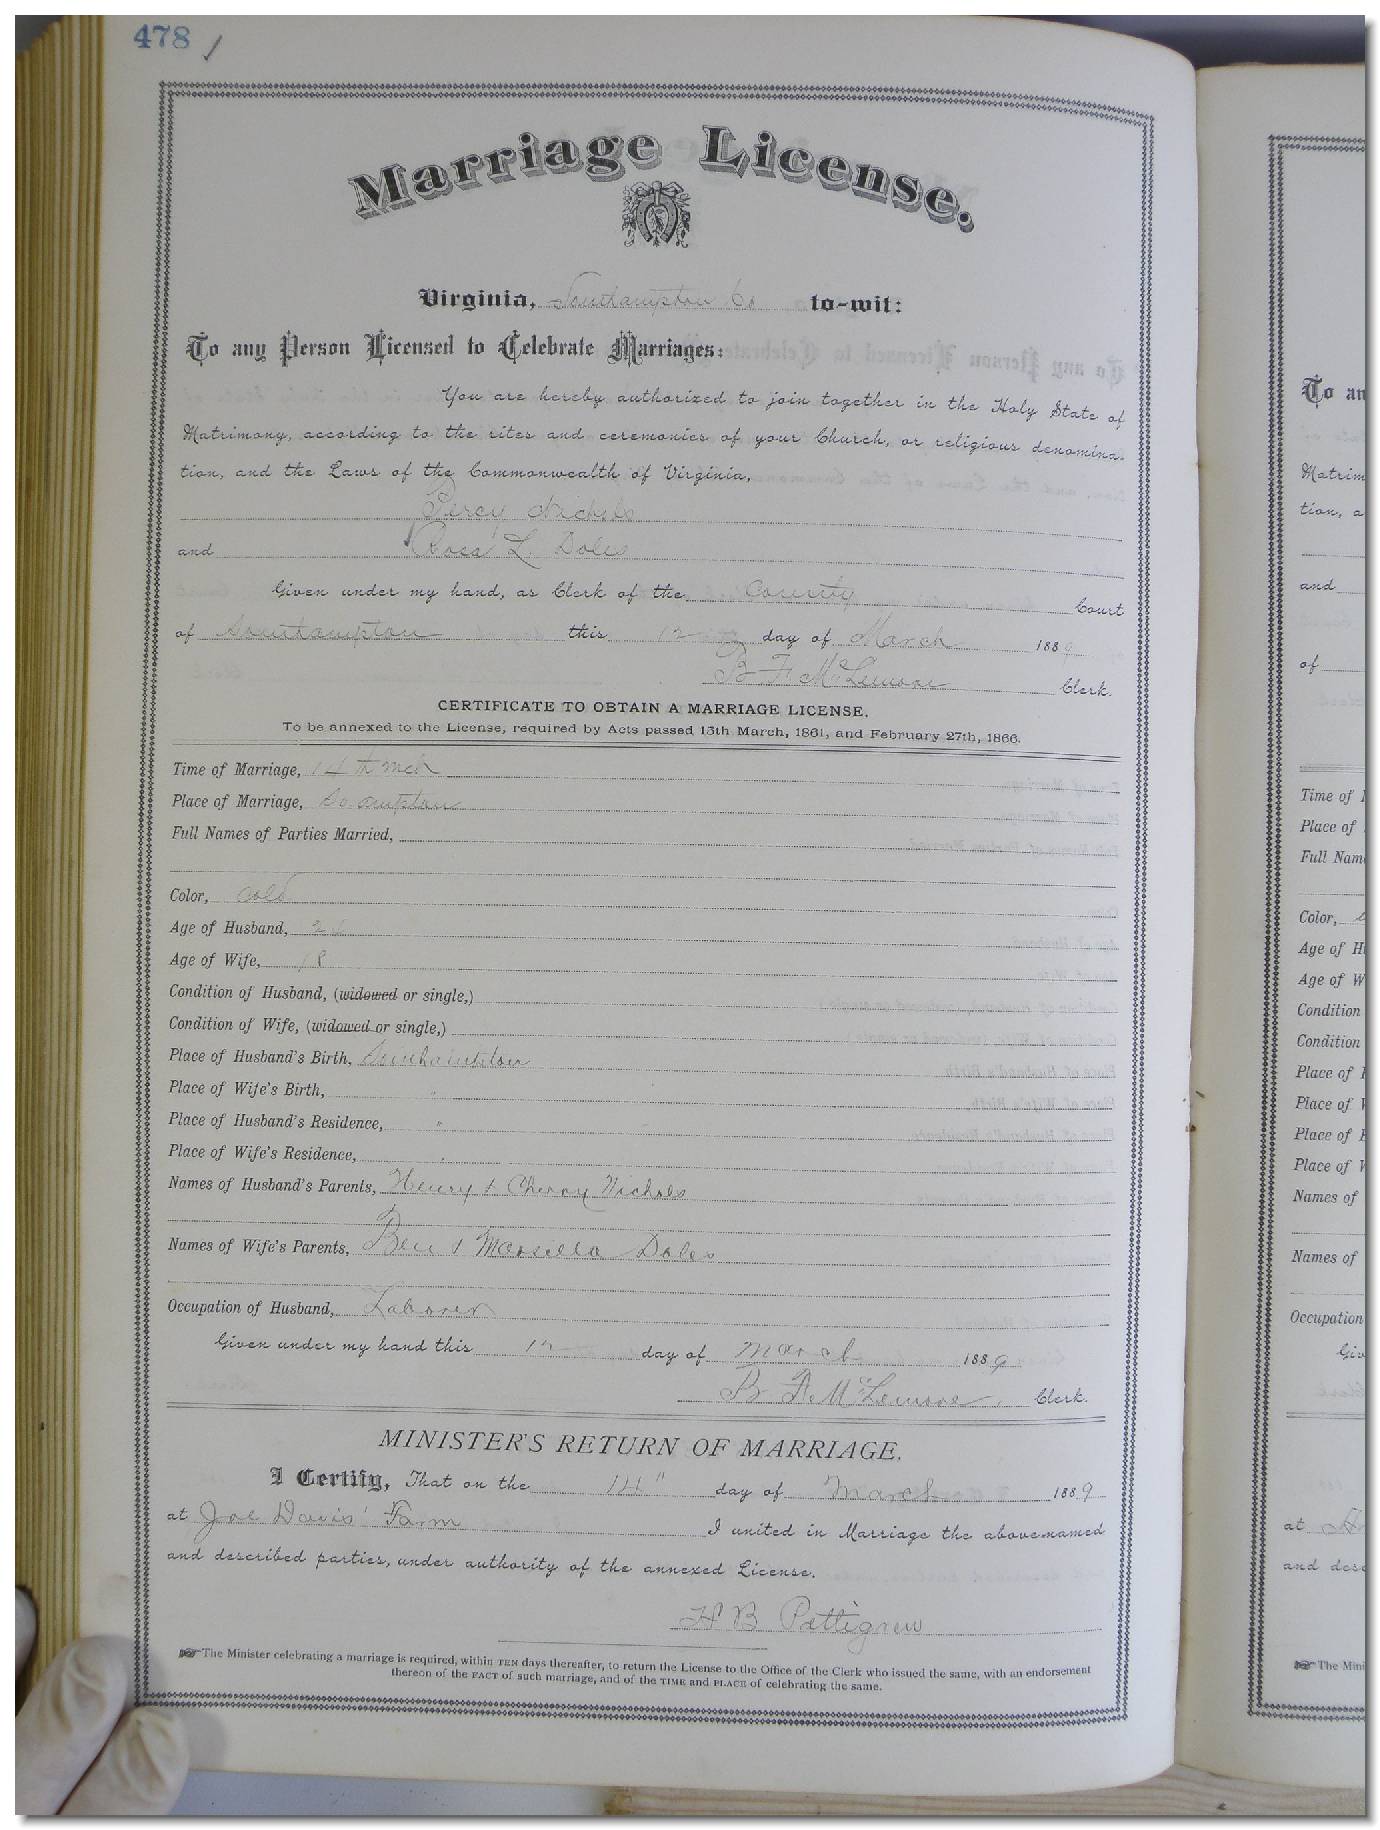 478
Marriage License.
Virginia, Southampton Co to-wit:
To any Person Licensed to Celebrate Marriages:
You are hereby authorized to join together in the Holy State of
Matrimony, according to the rites and ceremonies of your Church, or religious denomina-
tion, and the Laws of the Commonwealth of Virginia,
Percy Nichols
and Rosa L. Doles
Given under my hand, as Clerk of the County Court
of Southampton this 12 day of March 1889
B. F. McLemore Clerk.
CERTIFICATE TO OBTAIN A MARRIAGE LICENSE.
To be annexed to the License, required by Acts passed 15th March, 1861, and February 27th, 1866.
Time of Marriage, 14th Mch
Place of Marriage, So.ampton
Full Names of Parties Married,
Color, Cold
Age of Husband,
Age of Wife, 18
Condition of Husband, (widowed or single,)
Condition of Wife, (widowed or single,)
Place of Husband's Birth, Southampton
Place of Wife's Birth, "
Place of Husband's Residence, "
Place of Wife's Residence, "
Names of Husband's Parents, Henry & Cherry Nichols
Names of Wife's Parents, Ben & Marsella Doles
Occupation of Husband, Laborer
Given under my hand this 12 day of March 1889
B. F. McLemore Clerk.
MINISTER'S RETURN OF MARRIAGE.
I Certify, That on the 14" day of March 1889
at Joe Davis' Farm I united in Marriage the above-named
and described parties, under authority of the annexed License.
H B Pettigrew
☞The Minister celebrating a marriage is required, within TEN days thereafter, to return the License to the Office of the Clerk who issued the same, with an endorsement
thereon of the FACT of such marriage, and of the TIME and PLACE of celebrating the same.
To an
Matrim
tion, a
and
of
Time of
Place of
Full Nam
Color,
Age of H
Age of W
Condition
Condition
Place of
Place of
Place of
Place of
Names of
Names of
Occupation
Giv
at
and desc
☞The Mini